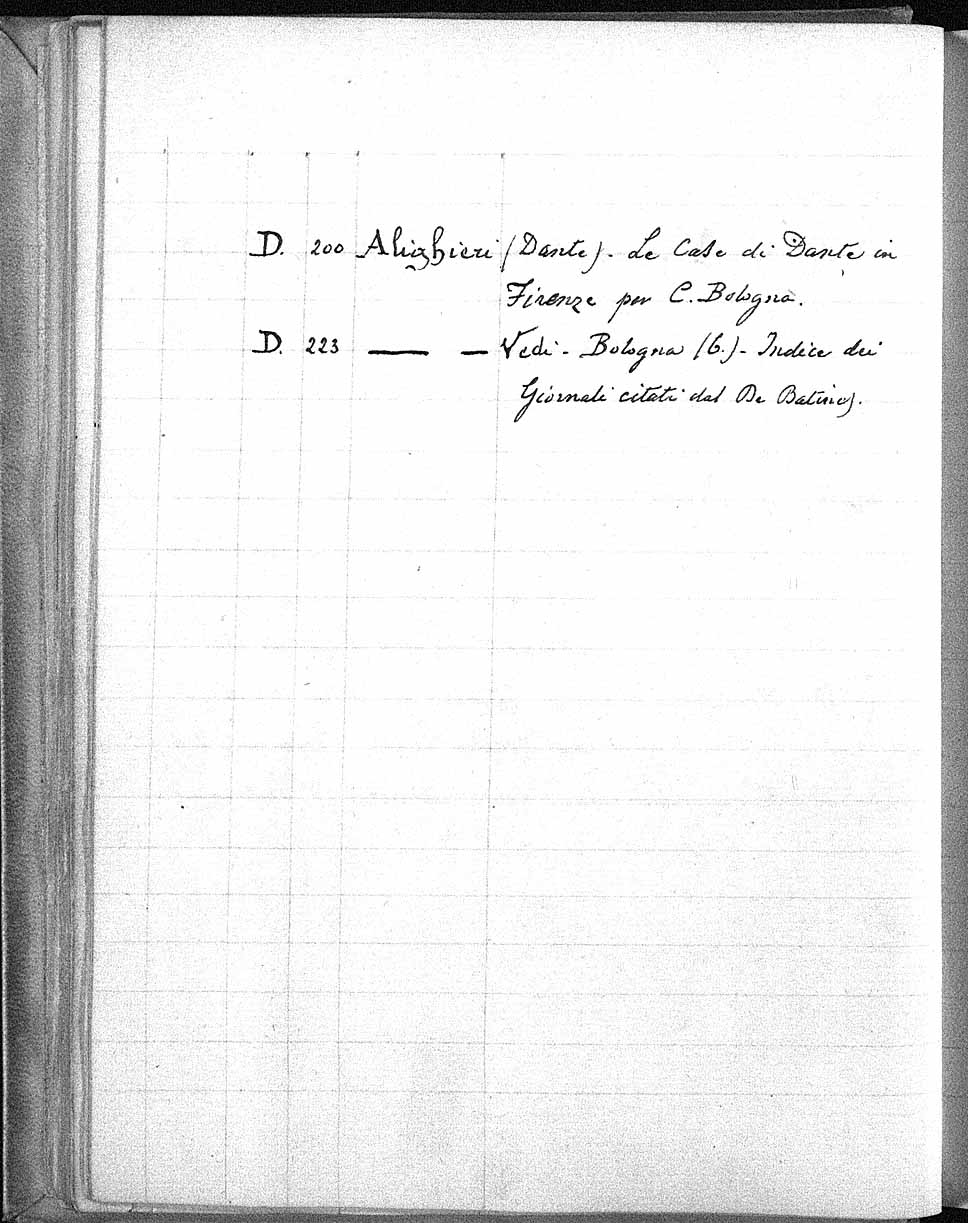 D. 200 Alighieri (Dante). Le Case di Dante in
Firenze per C. Bologna.
D. 223 — — Vedi - Bologna (C.) - Indice dei
Giornali citati dal De Batines).